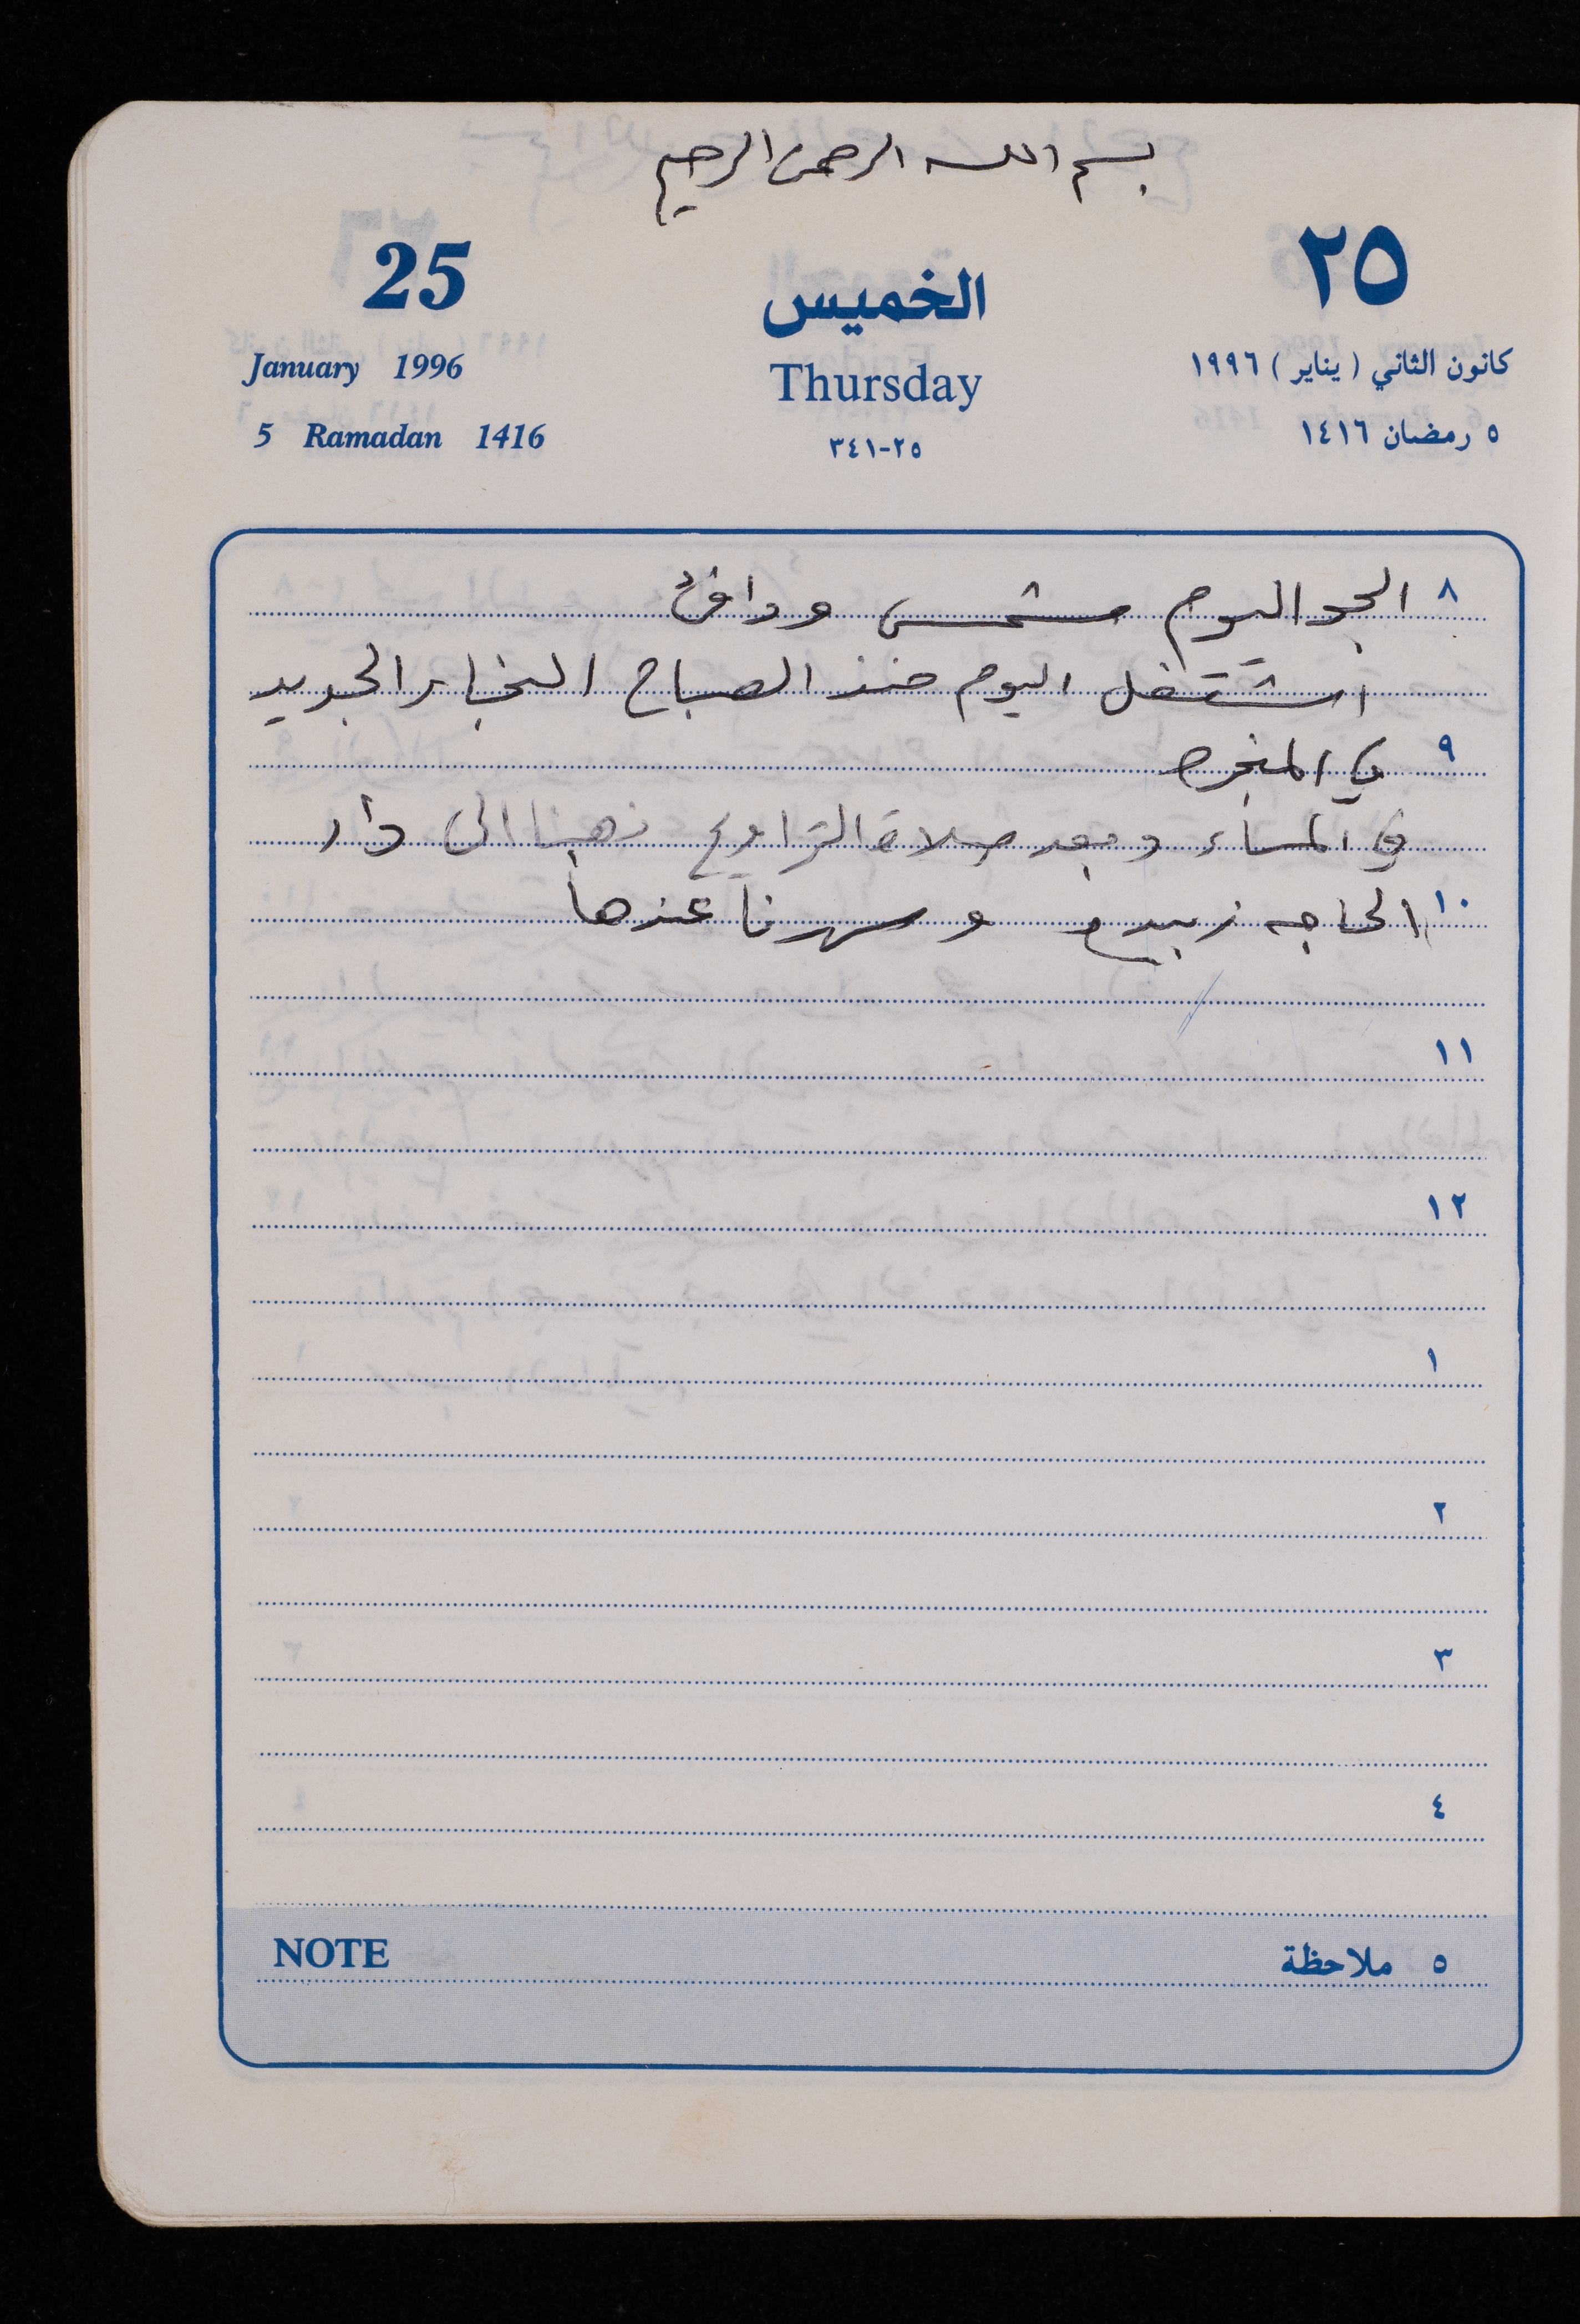 بسم الله الرحمن الرحيم
25 الخميس ٢٥
January 1996 Thursday كانون الثاني ( يناير ) ١٩٩٦
5 Ramadan 1416 ٢٥-٣٤١ ٥ رمضان ١٤١٦
٨ الجو اليوم مشمس ودافئ
اشتغل اليوم منذ الصباح الخباز الجديد
٩ في المخبز
في المساء وبعد صلاة التراويح ذهبنا الى دار
١٠ الحاجه زبيده وسهرنا عندها
١١
١٢
١
٢
٣
٤
NOTE ٥ ملاحظة